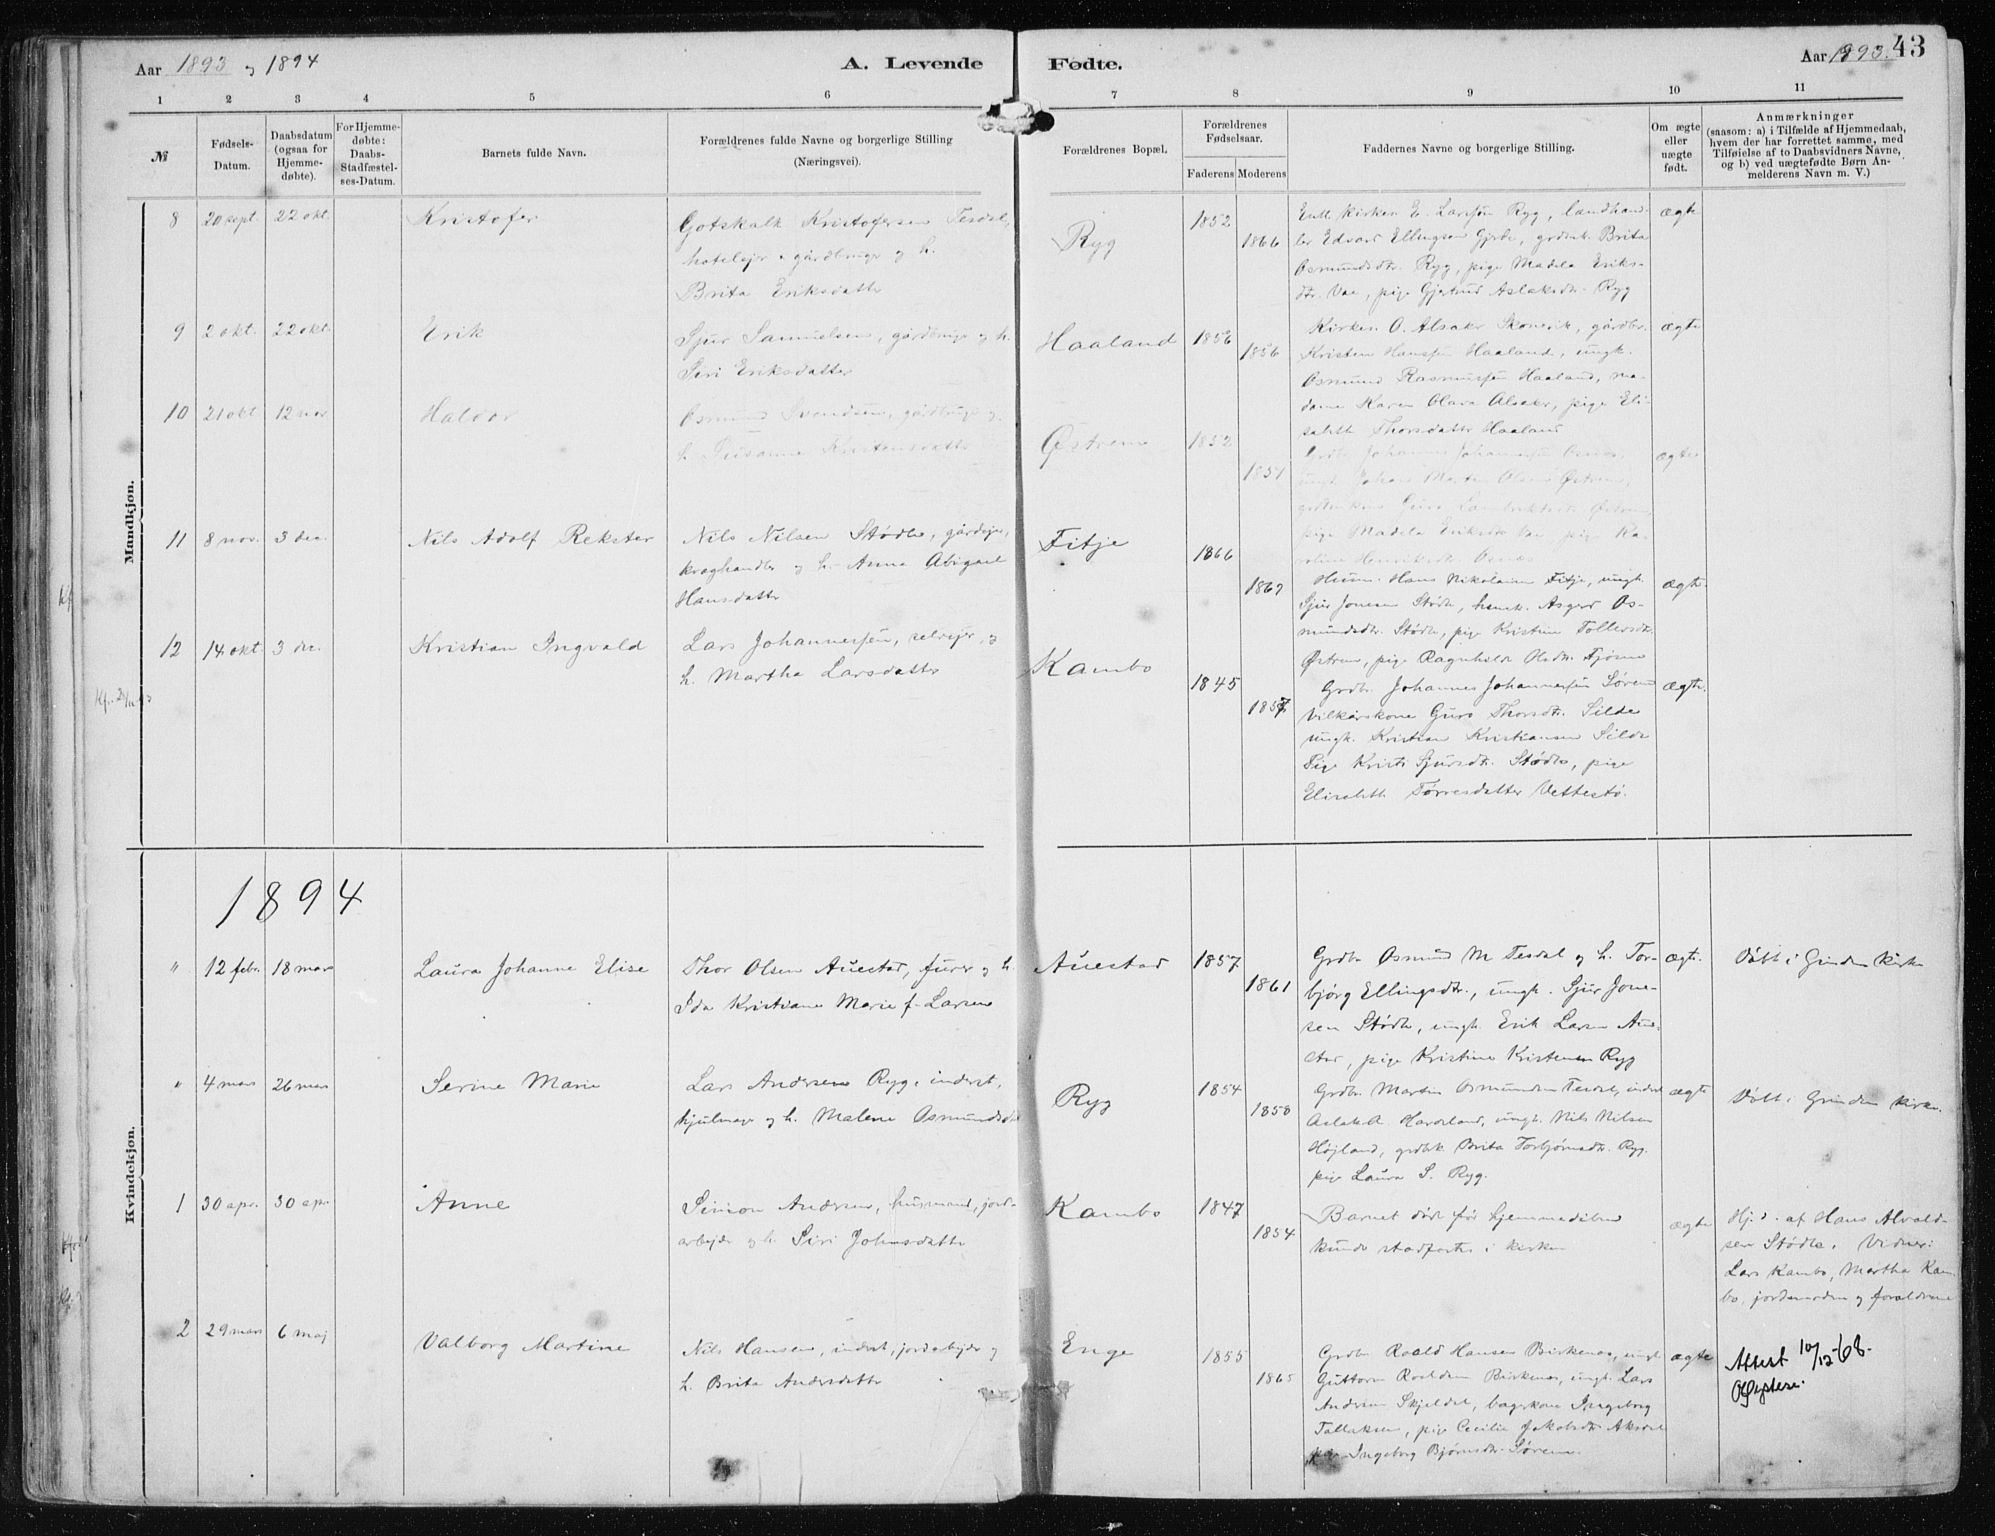 Aar 1893 og 1894
A. Levende Fødte.
Aar 1893.
43
1 2 3 4 5 6 7 8 9 10 11
№
Fødsels-
Datum.
Daabsdatum
(ogsaa for
Hjemme-
døbte).
For Hjemme-
døbte:
Daabs-
Stadfæstel-
ses-Datum.
Barnets fulde Navn.
Forældrenes fulde Navne og borgerlige Stilling
(Næringsvei).
Forældrenes Bopæl.
Forældrenes
Fødselsaar.
Faderens Moderens
Faddernes Navne og borgerlige Stilling.
Om ægte
eller
uægte
født.
Anmærkninger
(saasom: a) i Tilfælde af Hjemmedaab,
hvem der har forrettet samme, med
Tilføielse af to Daabsvidners Navne,
og b) ved uægtefødte Børn An-
melderens Navn m. V.)
Mandkjøn.
8 20 sept. 22 okt. Kristofer
Gotskalk Kristofersen Tesdal,
hotelejer gårdbruger og h.
Brita Eriksdatter
Ryg 1852 1866
Kirkes. E. Larssøn Ryg, landhand-
ler Edvard Ellingsen Gjerde, Brita
Osmundsdtr. Ryg, pige Madela Eriks-
dtr. Vae, pige Gjertrud Aslaksdtr. Ryg
ægte
9 2 okt. 22 okt. Erik
Sjur Samuelsen, gårdbruger og h.
Siri Eriksdatter
Haaland 1856 1856
Kirkes. O. Alsaker Skonevik, gårdbr.
Kristen Hanssøn Haaland, ungk.
Osmund Rasmussøn Haaland, ma-
dame Karen Olava Alsaker, pige Eli-
sabeth Thorsdatter Haaland
ægte
10 21 okt 12 nov Haldor
Osmund Svendsen, gårdbruger og
h. Susanne Kristensdatter
Østrem 1852 1851
Grdbr. Johannes Johannessøn Osnes,
ungk. Johan Martin Olsen Østrem,
Guro Lambrektsdtr. Østrem,
pige Madela Eriksdtr. Vae, pige Ka-
roline Henriksdtr. Osnes
ægte
11 8 nov. 3 dec. Nils Adolf Rekster
Nils Nilsen Stødle, gårdejer,
kraghandler og h. Anna Abigael
Hansdatter
Fitje 1866 1869
Hans Nikolaisen Fitje, ungk.
Sjur Jonesen Stødle, Asgerd Os-
mundsdtr. Stødle, pige Kristine Tollefsdtr.
Østrem, pige Ragnhilda Fjøsne
ægte
12 14 okt. 3 dec. Kristian Ingvald
Lars Johannessøn, selvejer, og
h. Martha Larsdatter
Kambo 1845 1857
Grdbr. Johannes Johannessøn Sørem
Vilkårskone Guro Thorsdtr. Silde
ungk. Kristian Kristiansen Silde
Pige Kristi Sjursdtr. Stødle, pige
Elisabeth Tørresdatter Vettestø.
ægte.
Kvindekjøn.
1894
" 12 febr. 18 mars Laura Johanne Elise
Thor Olsen Auestad, furer og h.
Ida Kristiane Marie f. Larsen
Auestad 1857 1861
Grdbr Osmund M Tesdal og h. Tor-
bjørg Ellingsdtr., ungk. Sjur Jone-
sen Stødle, ungk. Erik Larsen Aue-
stad, pige Kristine Kristensen Ryg
ægte.
Døbt i Grinden kirke
" 4 mars 26 mars Serine Marie
Lars Andersen Ryg, inderst,
hjulmager og h. Malene Osmundsdtr
Ryg 1854 1858
Grdbr. Martin Osmundsen Tesdal, inderst
Aslak A. Harveland, ungk. Nils Nilsen
Højland, grdbrk Brita Torbjørnsdtr. Ryg.
pige Laura S. Ryg.
ægte
Døbt i Grinden kirke.
1 30 apr. 30 apr Anne
Simon Andersen, husmand, jord-
arbejder og h. Siri Johnsdatter
Kambo 1847 1854
Barnet døde før hjemmedåben
kunde stadfæstes i kirken
ægte
Hj.d. af Hans Alvald-
sen Stødle. Vidner:
Lars Kambo, Martha Kam-
bo, jordemoder og forældrene
2 29 mars 6 maj Valborg Martine
Nils Hansen, inderst, jordarbejder og
h. Brita Andersdatter
Enge 1855 1865
Grdbr Roald Hansen Birkenes, ungk.
Guttorm Roaldsen Birkenes, ungk. Lars
Andersen Skjeldal, bagerkone Ingeborg
Tollaksen, pige Cecilie Jakobsdtr. Aksdal
pige Ingeborg Bjørnsdtr. Sørem.
ægte
Attest 10/12-68.